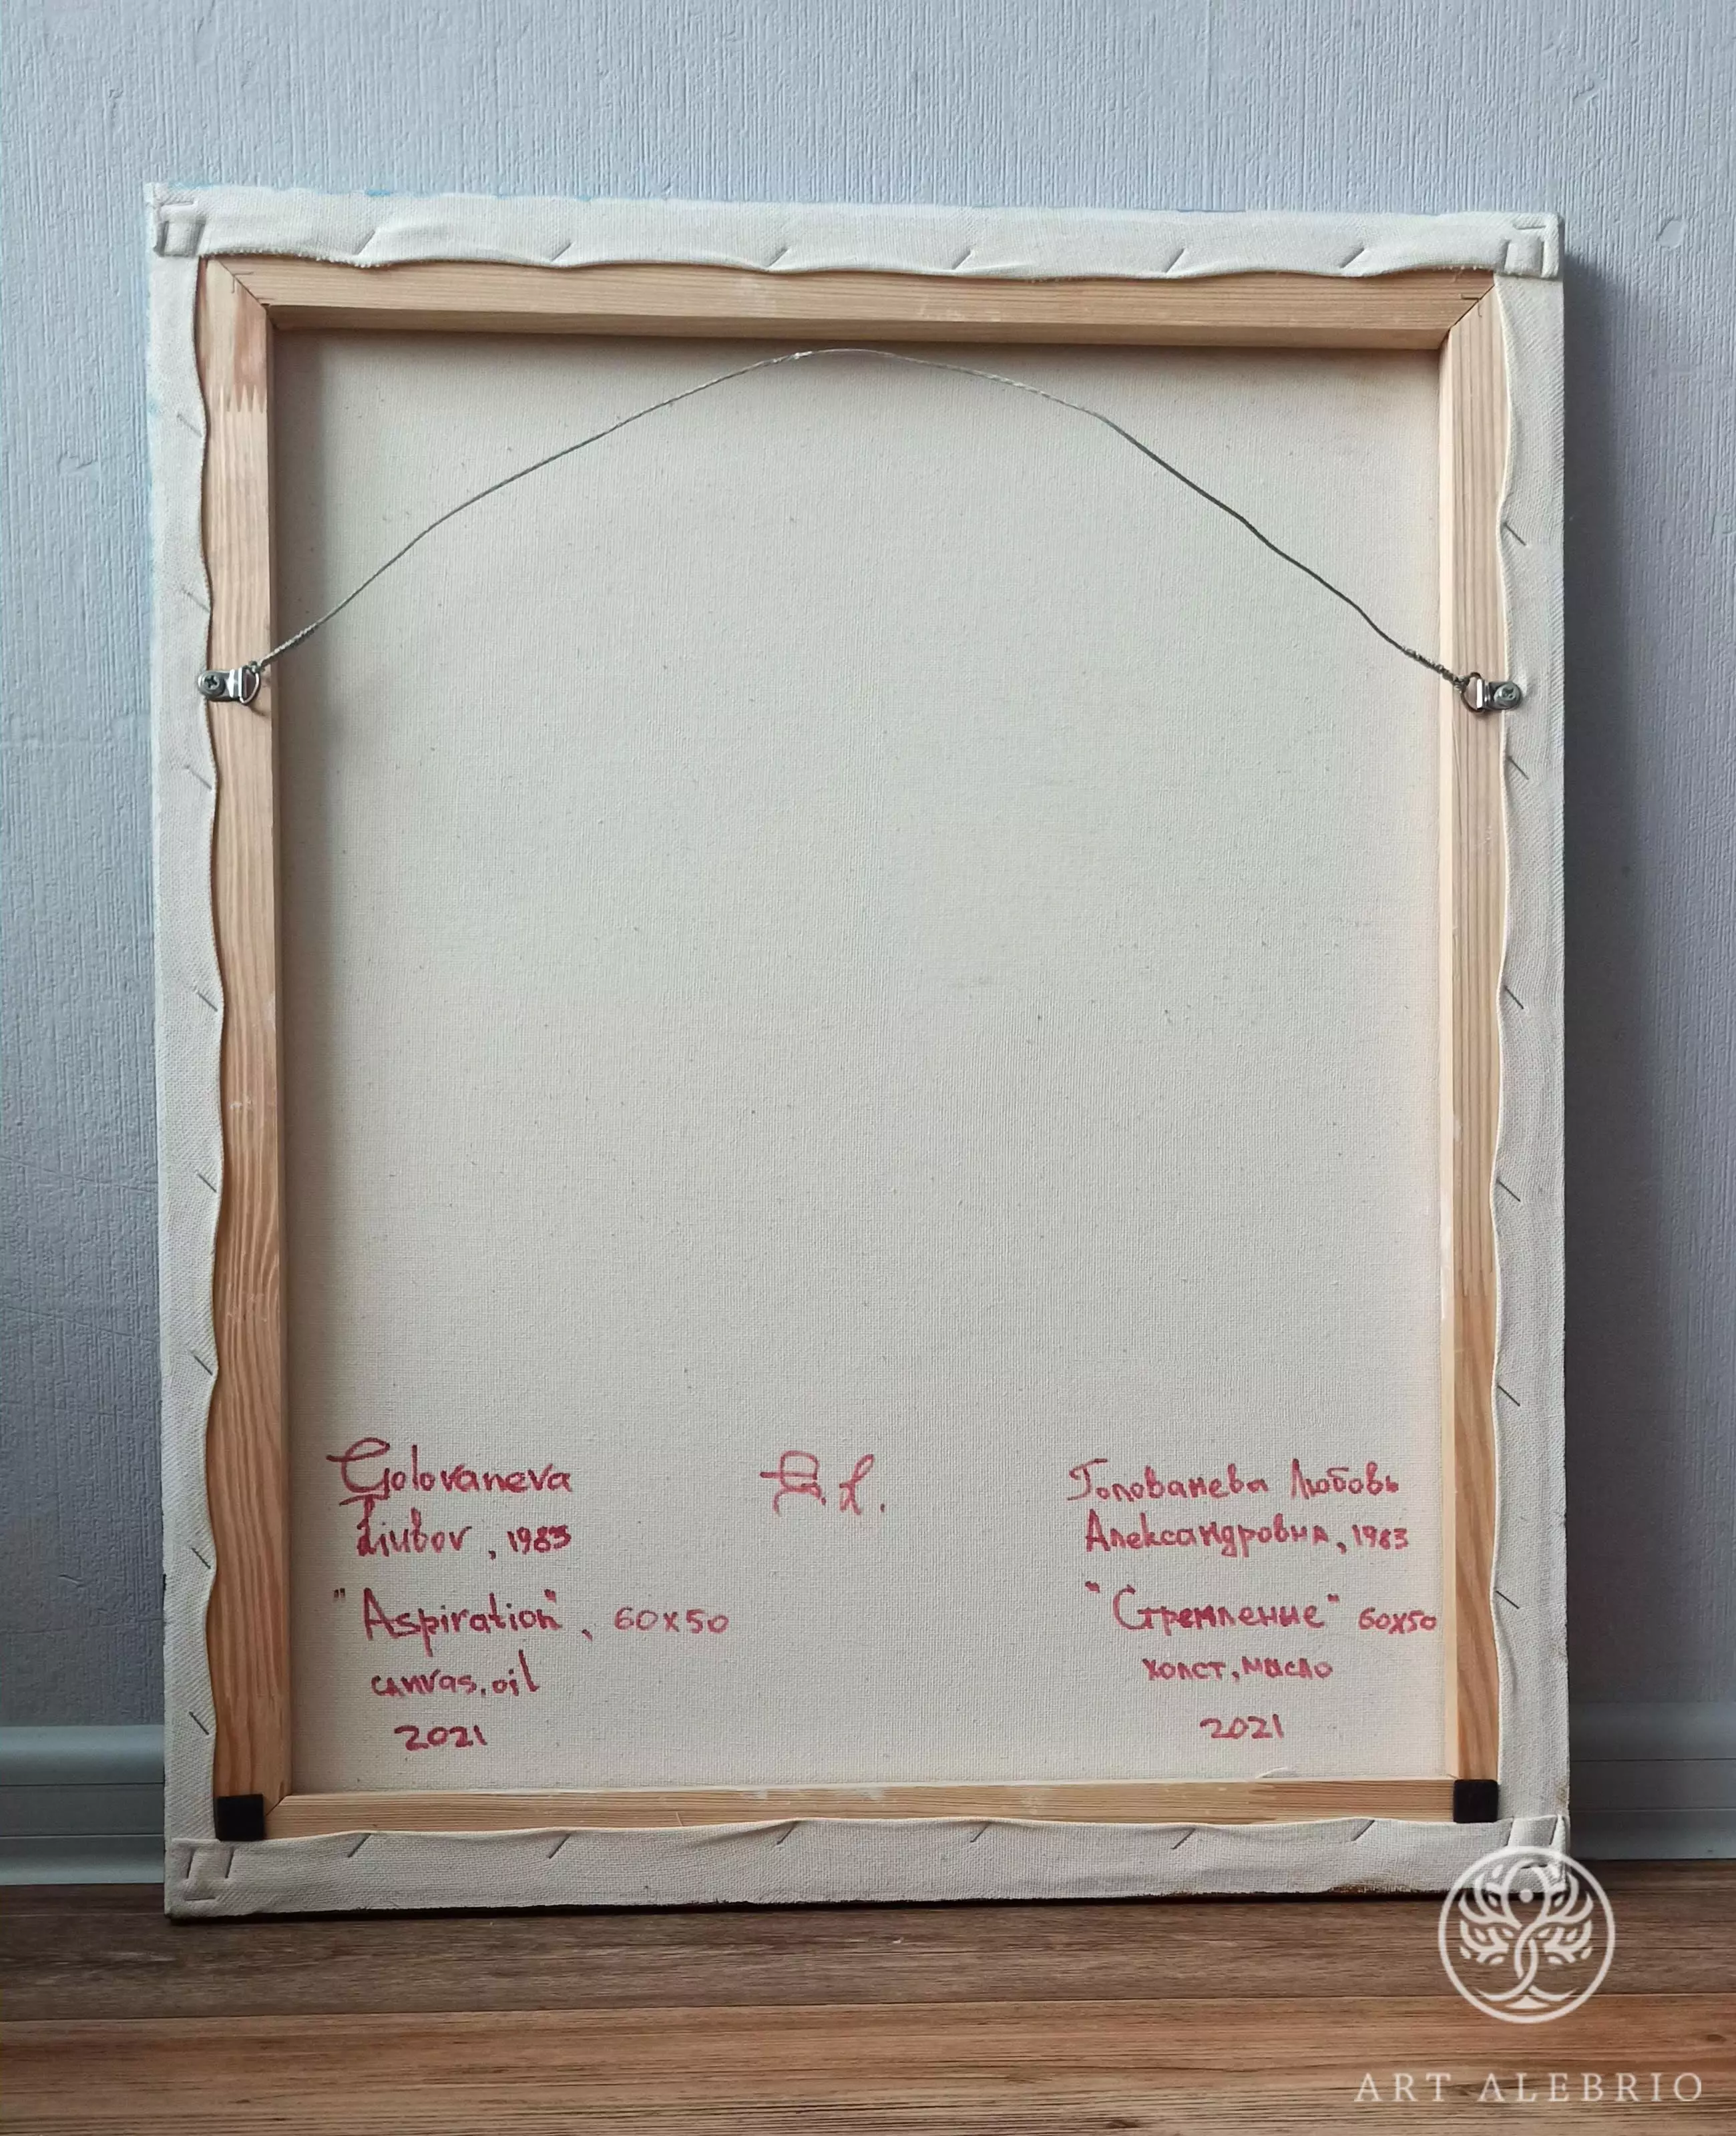 Golovaneva
Liubov, 1983
"Aspiration", 60x50
canvas, oil
2021
Голованева Любовь
Александровна, 1983
"Стремление" 60x50
холст, масло
2021
ART ALEBRIO